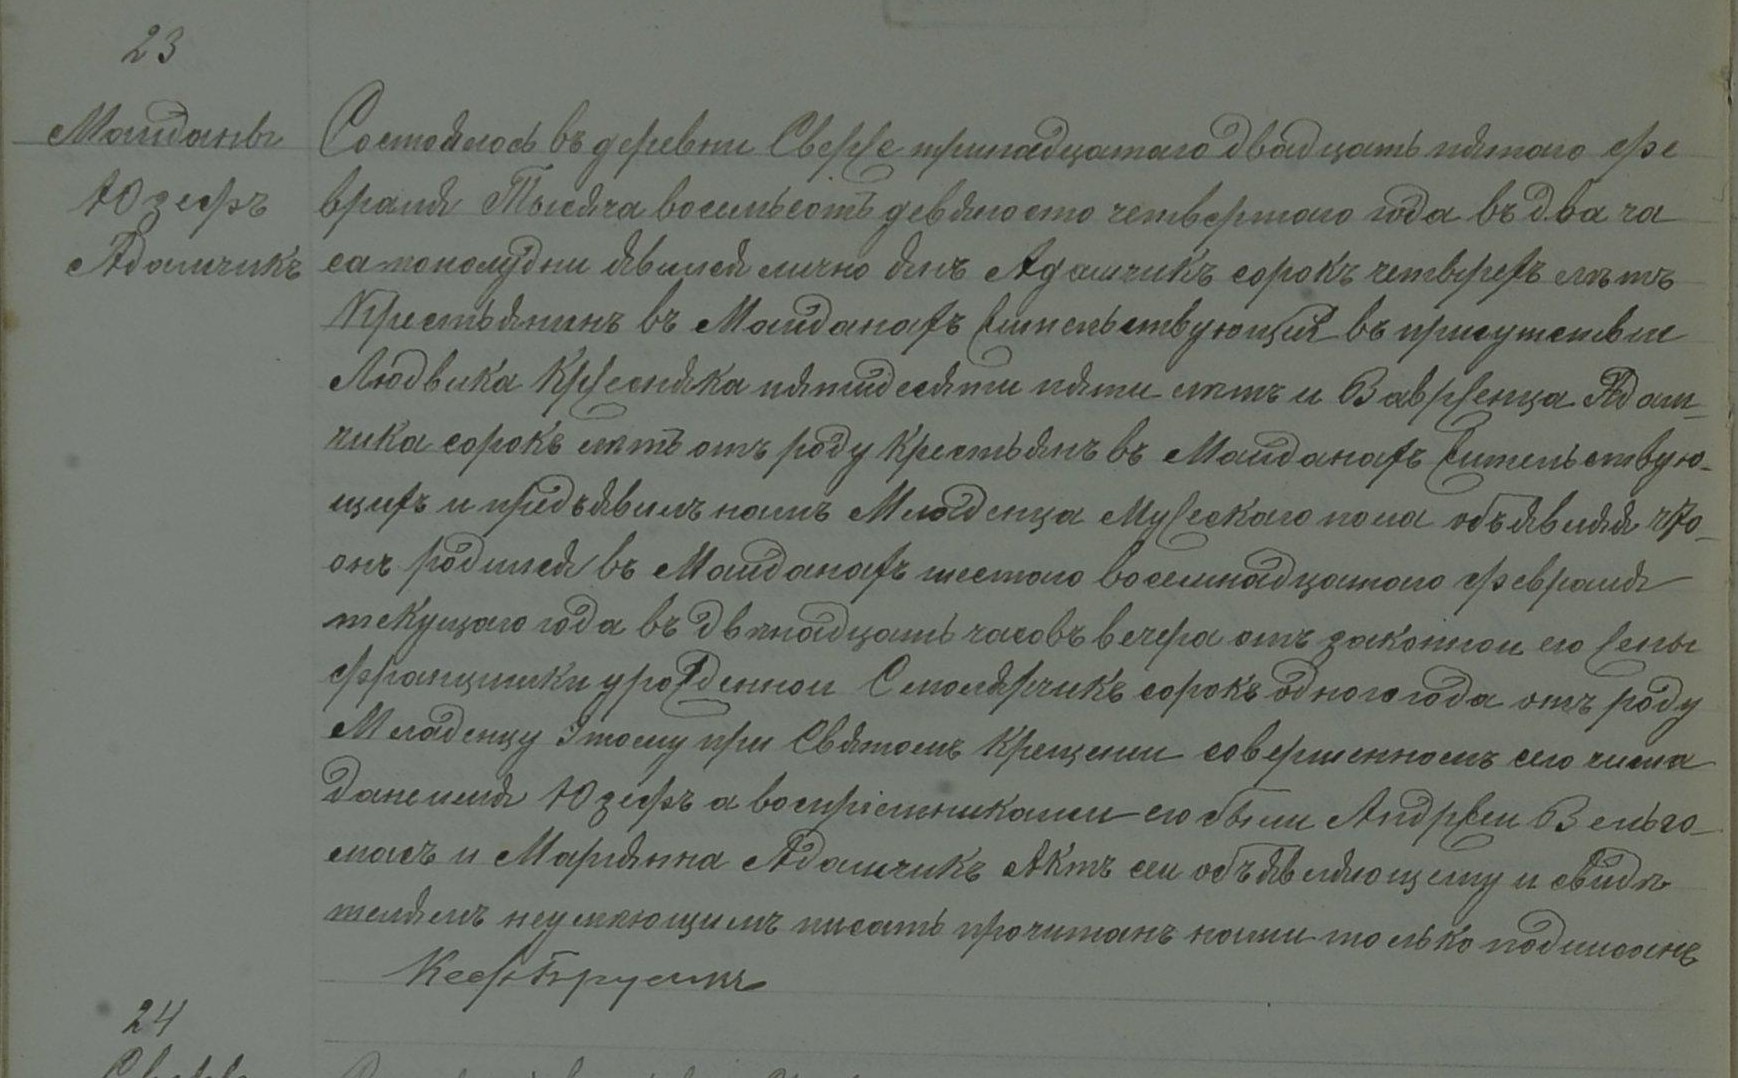 23
Майданы
Юзефъ
Адамчикъ
Состоялось въ деревни Сверже тринадцатаго двадцать пятаго фе
враля Тысяча восемьсотъ девяносто четвертаго года въ два ча
са пополудни явился лично Янъ Адамчикъ сорокъ четырехъ лѣтъ
Крестьянинъ въ Майданахъ жительствующій въ присутствіи
Людвика Кржесняка пятидесяти пяти лѣтъ и Ваврженца Адам-
чика сорокъ лѣтъ отъ роду крестьянъ въ Майданахъ жительствую-
щихъ и предъявилъ намъ Младенца Мужескаго пола объявляя что
онъ родился въ Майданахъ шестаго восемнадцатаго февраля
текущаго года въ двѣнадцать часовъ вечера отъ законной его жены
Францишки урожденной Столярчикъ сорокъ одного года отъ роду
Младенцу Этому при Святомъ Крещеніи совершенномъ сего числа
дано имя Юзефъ а воспріемниками его были Андржей Вельго-
лясъ и Маріянна Адамчикъ Актъ сей объявляющему и свидѣ
телямъ неумѣющимъ писать прочитанъ нами только подписанъ
24